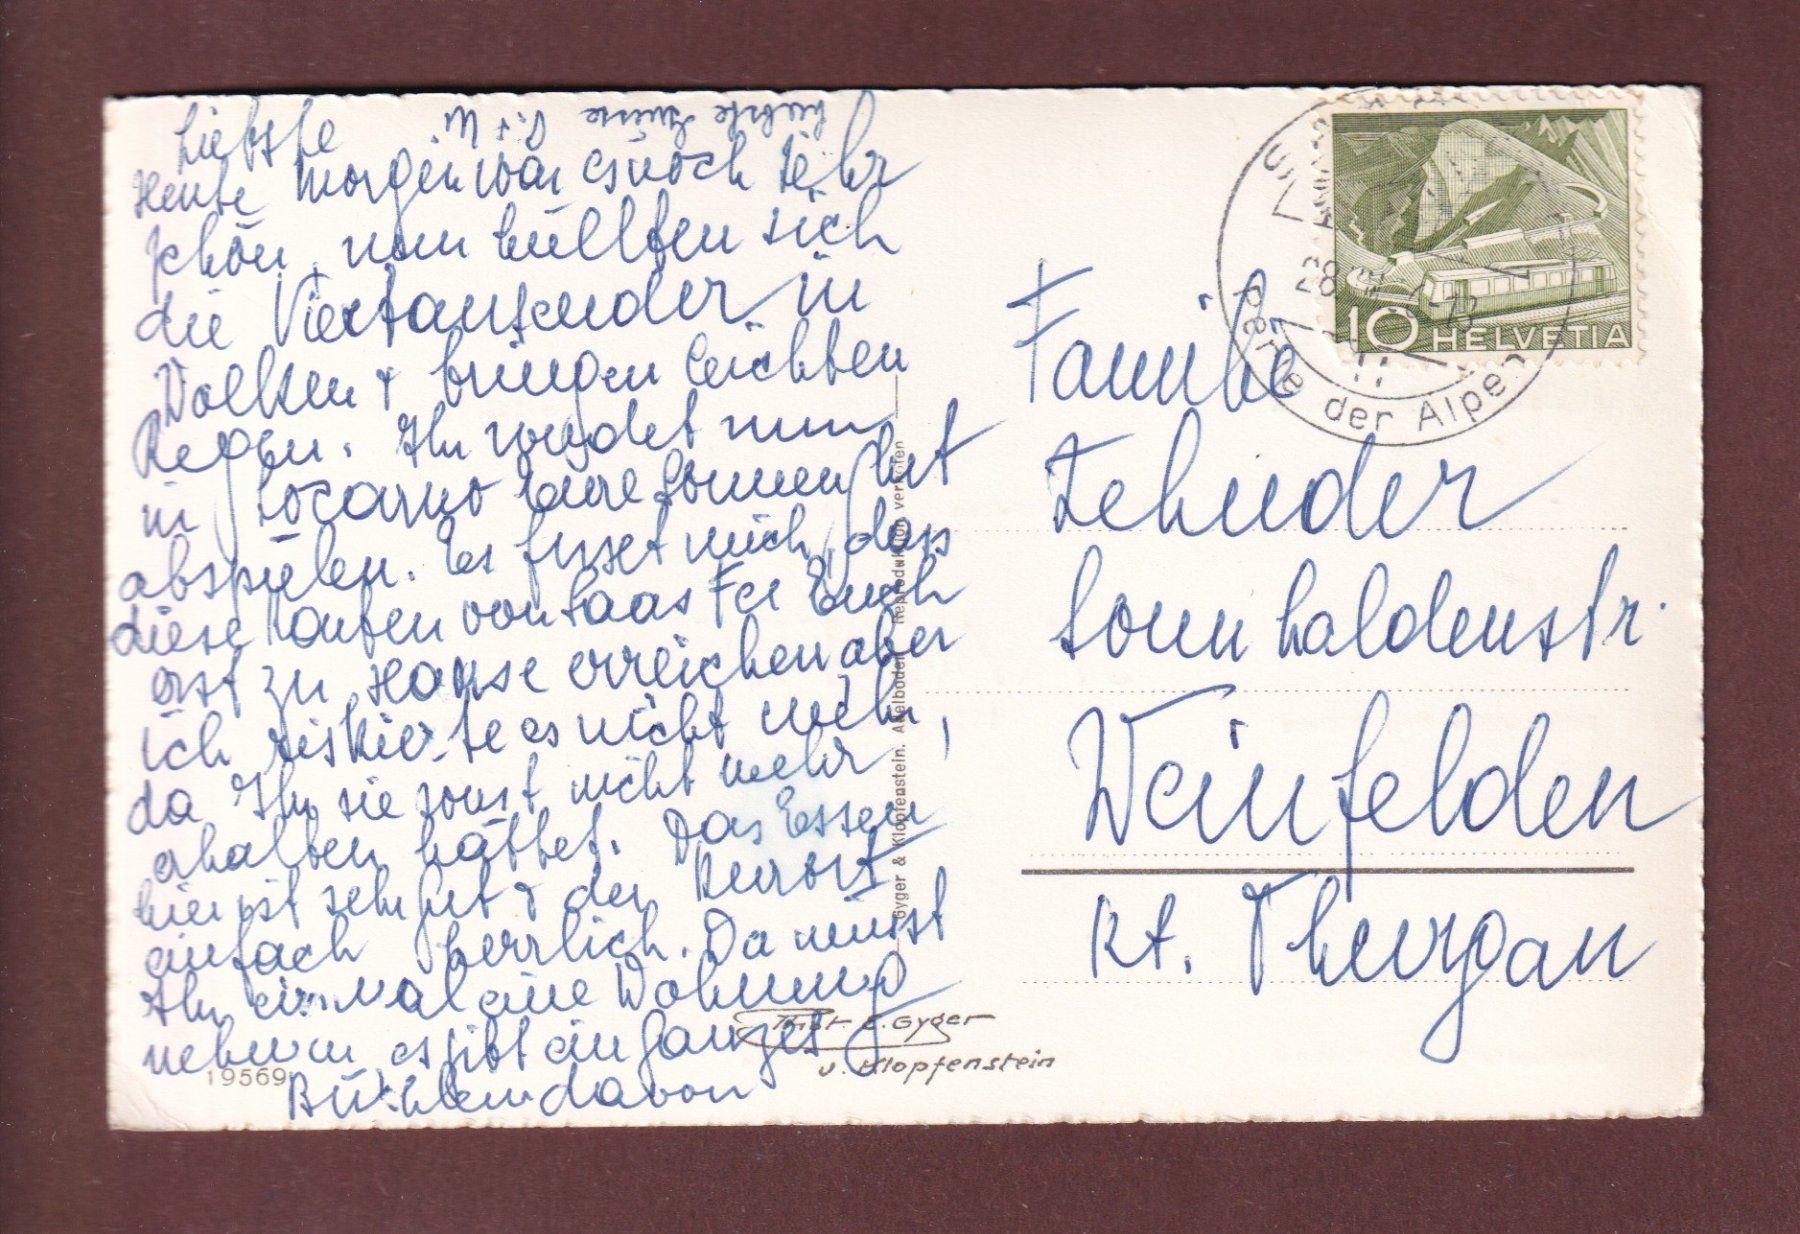 Liebste
Heute Morgen war es noch sehr
schön, nun hüllten sich
die Viertausender in
Wolken & bringen leichten
Regen. Ihr werdet nun
in Locarno Eure Sonnenhut
abspülen. Es freut mich, dass
diese Karten von Saas Fee Euch
erst zu Hause erreichen aber
ich riskierte es nicht mehr,
da Ihr sie sonst nicht mehr
erhalten hättet. Das Essen
hier ist sehr gut & der Kurort
einfach herrlich. Da müsst
Ihr einmal eine Wohnung
nehmen es gibt ein ganzes
davon
herzliche Grüsse
Familie
Zehnder
Sonnhaldenstr.
Weinfelden
Kt. Thurgau
10 HELVETIA
Perle der Alpen
Gyger & Klopfenstein, Adelboden Reproduktion verboten
Phot. E. Gyger
u. Klopfenstein
19569